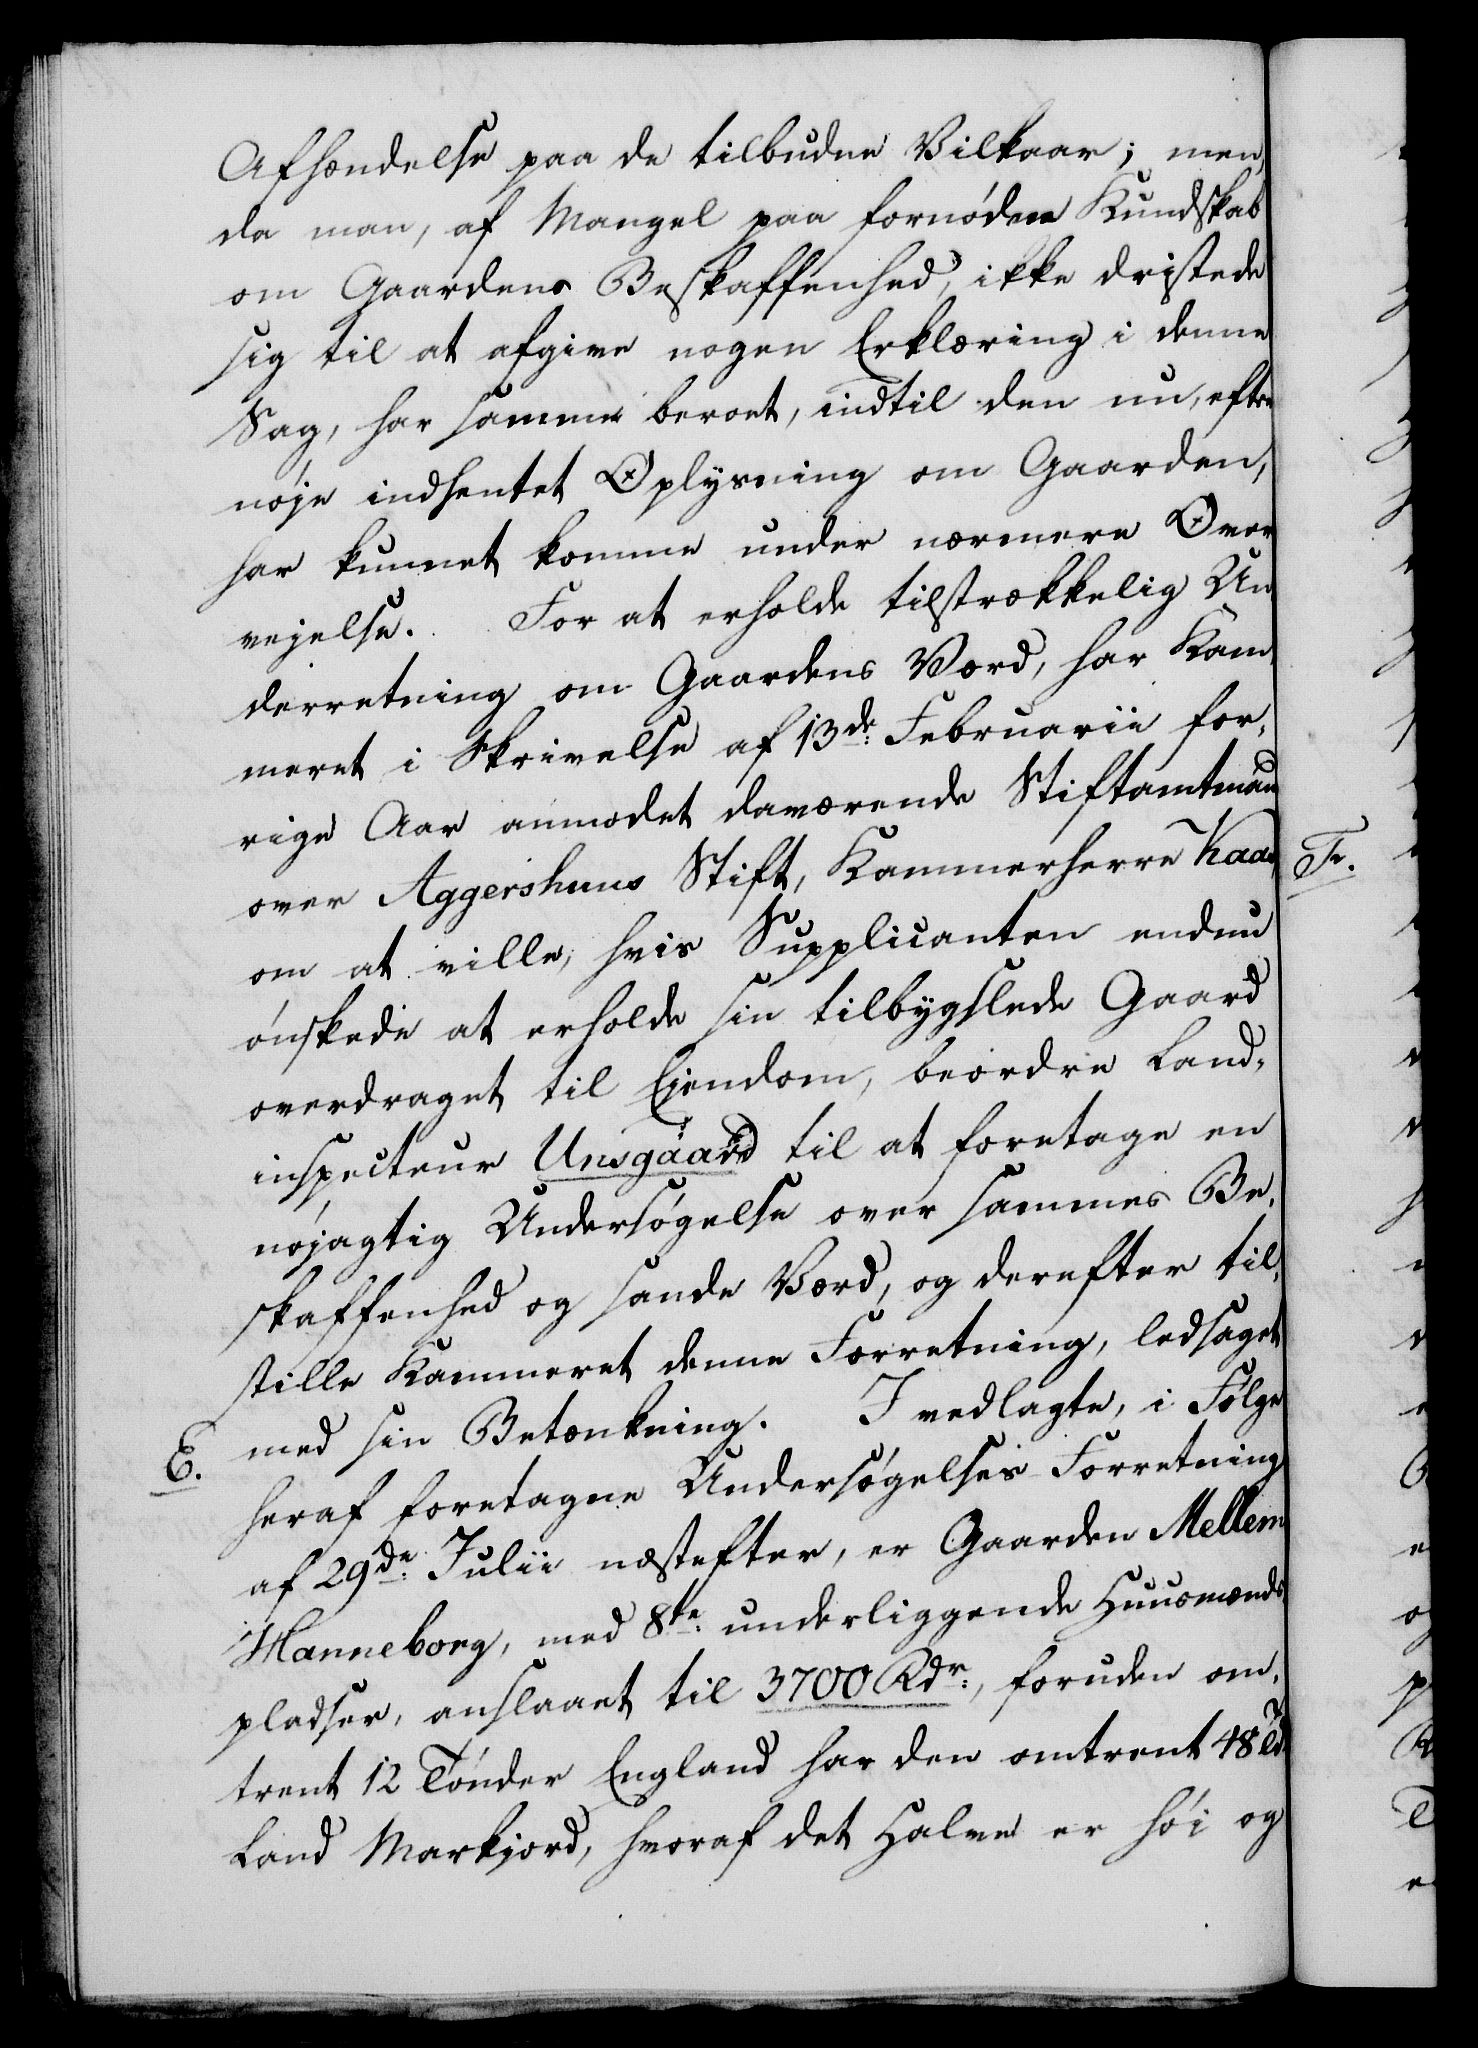 Afhændelse paa de tilbudne Vilkaar; men,
da man, af Mangel paa fornøden Kundskab
om Gaardens Beskaffenhed, ikke dristede
sig til at afgive nogen Erklæring i denne
Sag, har samme beroet, indtil den nu, efter
nøje indhentet Oplysning om Gaarden,
har kunnet komme under nærmere Over
vejelse. For at erholde tilstrækkelig Un
derretning om Gaardens Værd, har Kam-
meret i Skrivelse af 13de: Februarii for-
rige Aar anmodet daværende Stiftamtmand
over Aggershuus Stift, Kammerherre Kaas,
om at ville, hvis Supplicanten endnu
ønskede at erholde sin tilbygslede Gaard
overdraget til Ejendom, beordre Land-
inspecteur Unsgaard til at foretage en
nøjagtig Undersøgelse over sammes Be-
skaffenhed og sande Værd, og derefter til-
stille Kammeret denne Forretning, ledsaget
med sin Betænkning. I vedlagte, i Følge
E.
heraf foretagne Undersøgelses Forretning
af 29de: Julii næstefter, er Gaarden Mellem
Hanneborg, med 8te: underliggende Huusmænds
pladser, anslaaet til 3700 Rdr:, foruden om-
trent 12 Tønder England har den omtrent 48 Td
Land Markjord, hvoraf det Halve er høi og
F.